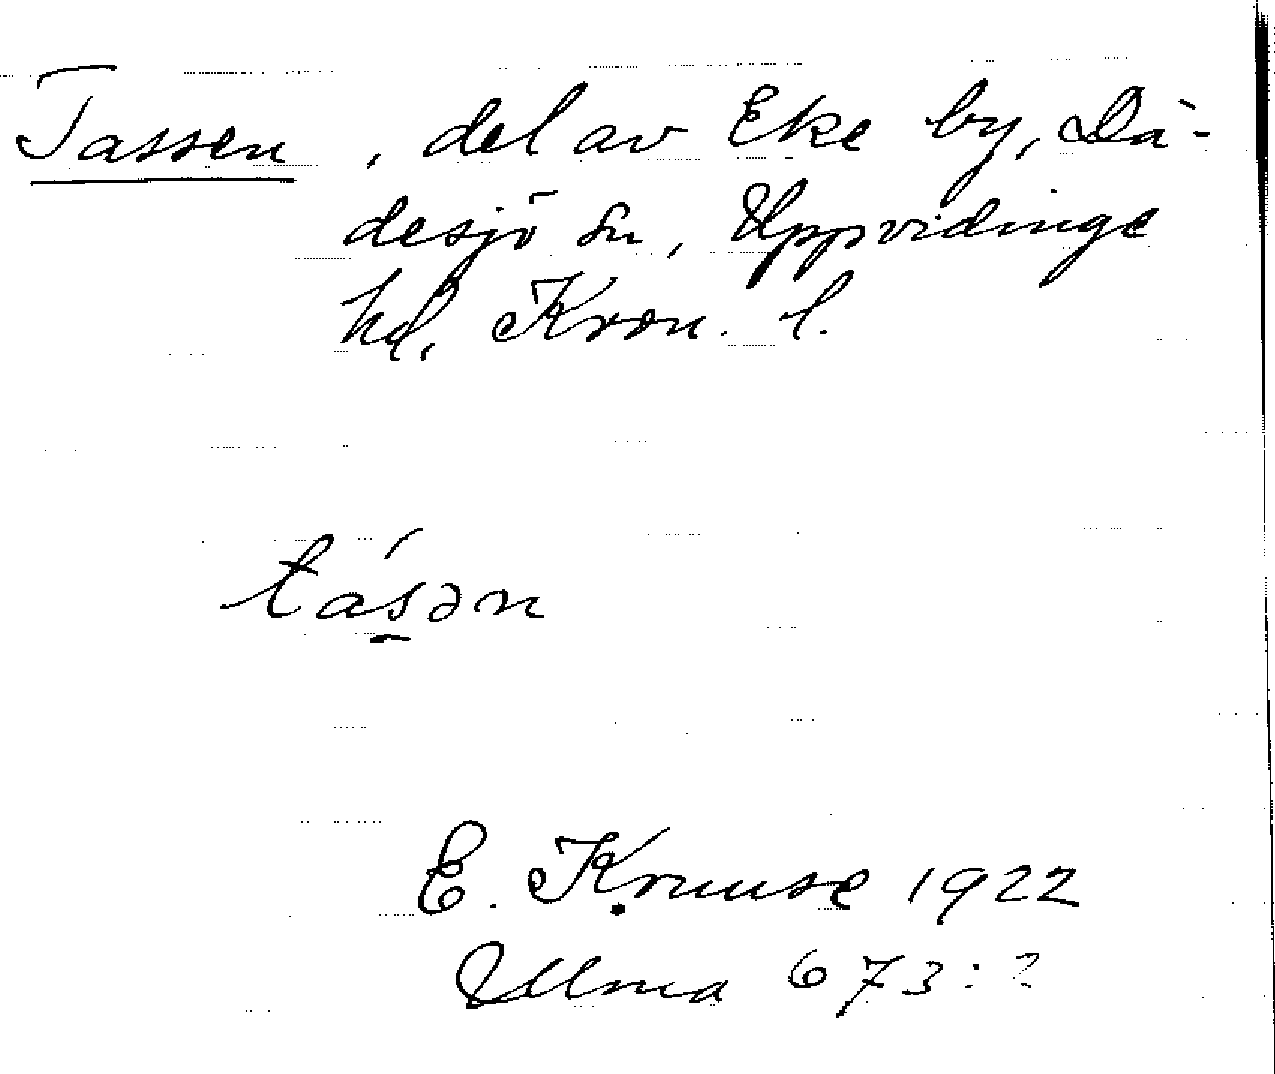 Tassen, del av Eke by, Dä-
desjö sn, Uppvidinge
hd, Kron. l.
tás̠ən
E. Kruuse 1922
Ulma 673:2